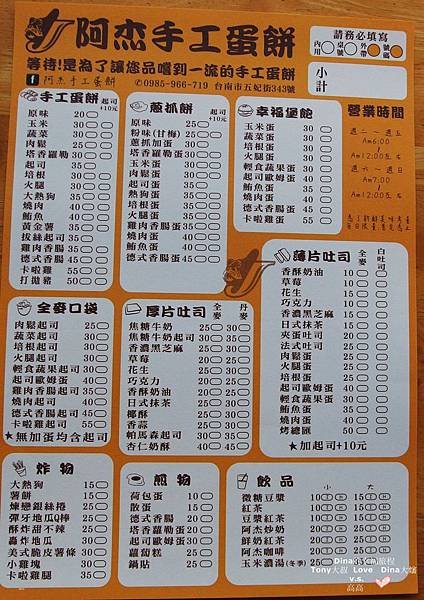 阿杰手工蛋餅
請務必填寫
內用 桌號 外帶 號碼
等待!是為了讓您品嚐到一流的手工蛋餅
小計
f 阿杰手工蛋餅 0985-966-719 台南市五妃街343號
手工蛋餅 起司+10元
原味 20
玉米 30
蔬菜 30
肉鬆 30
塔香羅勒 30
起司 35
培根 30
火腿 30
大熱狗 35
燒肉 40
鮪魚 40
黃金薯 35
拔絲起司 35
雞肉香腸 35
德式香腸 40
卡啦雞 55
打拋豬 50
蔥抓餅 起司+10元
原味 25
粉味(甘梅) 25
蔥抓加蛋 30
塔香羅勒蛋
玉米蛋
雞肉蛋
起司蛋
熱狗蛋
培根蛋
火腿蛋
雞肉香腸蛋
鮪魚蛋
燒肉蛋
德式香腸蛋
幸福堡飽
玉米蛋 30
蔬菜蛋 30
培根蛋 30
火腿蛋 30
輕食蔬果蛋 30
起司歐姆蛋 40
鮪魚蛋 40
燒肉蛋 40
德式香腸蛋 45
卡啦雞蛋 55
營業時間
週一~週五
Am6:00
Am12:00左右
週六~週日
Am7:00
Am12:00左右
全麥口袋
肉鬆起司 25
蔬菜起司 30
培根起司 30
火腿起司 30
輕食蔬果起司 30
起司歐姆蛋 40
雞肉香腸起司 35
燒肉起司 40
德式香腸起司 45
卡啦雞起司 55
★無加蛋均含起司
厚片吐司 全麥 丹麥
焦糖牛奶 25 30
焦糖牛奶起司 30 35
香濃黑芝麻 25 30
草莓 20 25
花生 25 30
巧克力 20 25
香酥奶油 20 25
日式抹茶 20 25
椰酥 20 25
香蒜 20 25
帕馬森起司 30 35
杏仁奶酥 40 45
薄片吐司 全麥 白吐司
香酥奶油 10
草莓 10
花生 15
巧克力 10
香濃黑芝麻 15
日式抹茶 10
夾蛋吐司 20
法式吐司 20
肉鬆蛋 30
火腿蛋 25
培根蛋 25
起司歐姆蛋 30
輕食蔬果蛋 30
鮪魚蛋 30
燒肉蛋 30
烤總匯 50
★加起司+10元
炸物
大熱狗 15
薯餅 15
煉戀銀絲捲 25
彈牙地瓜Q棒 25
酥炸甜不辣 25
轟炸地瓜 30
美式脆皮薯條 30
小雞塊 30
卡啦雞腿 35
煎物
荷包蛋 10
散蛋 15
德式香腸 20
塔香羅勒蛋 20
蔥蛋 20
蘿蔔糕 20
鍋貼 25
飲品 小 大
微糖豆漿 10 15
紅茶 10 15
豆漿紅茶 10 15
阿杰炒奶 20 25
鮮奶紅茶 20 25
阿杰咖啡 20 25
玉米濃湯(冬季) 25 35
Tony大叔 Love Dina大嬸
v.s.
高高